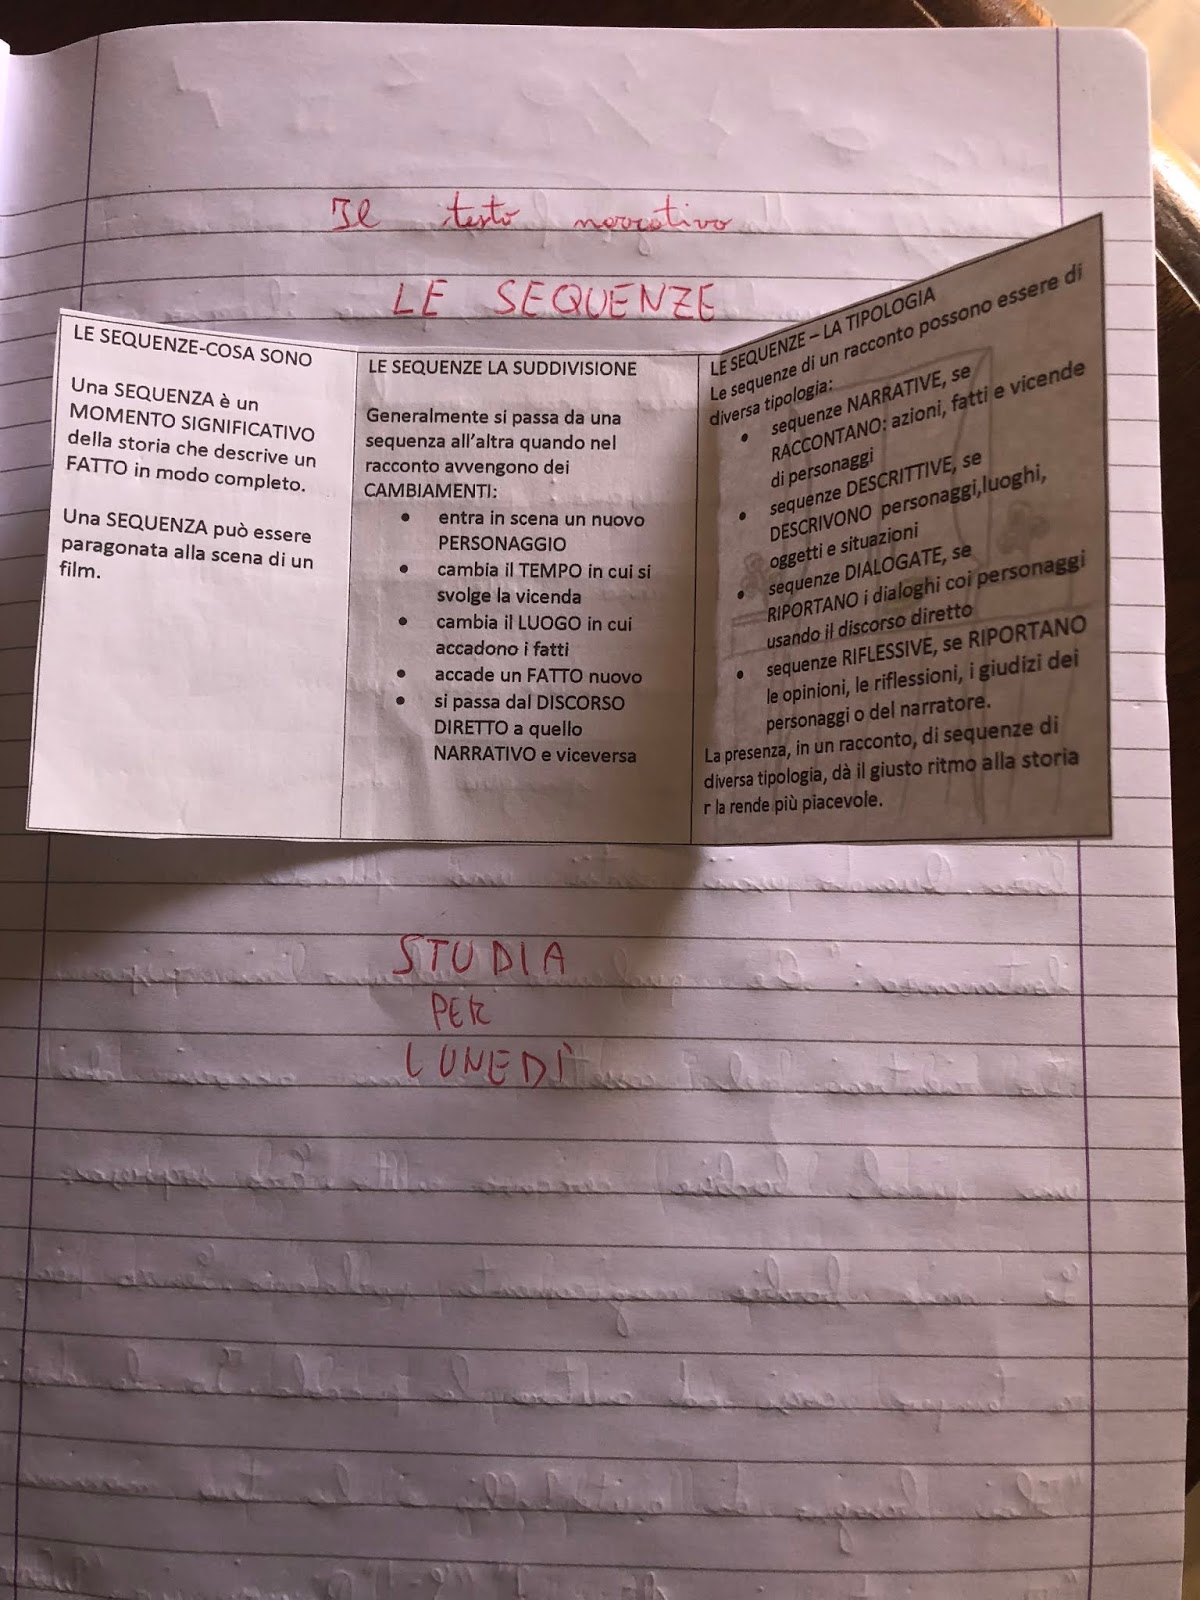 Il testo narrativo
LE SEQUENZE
LE SEQUENZE-COSA SONO
Una SEQUENZA è un
MOMENTO SIGNIFICATIVO
della storia che descrive un
FATTO in modo completo.
Una SEQUENZA può essere
paragonata alla scena di un
film.
LE SEQUENZE LA SUDDIVISIONE
Generalmente si passa da una
sequenza all'altra quando nel
racconto avvengono dei
CAMBIAMENTI:
• entra in scena un nuovo
PERSONAGGIO
• cambia il TEMPO in cui si
svolge la vicenda
• cambia il LUOGO in cui
accadono i fatti
• accade un FATTO nuovo
• si passa dal DISCORSO
DIRETTO a quello
NARRATIVO e viceversa
LE SEQUENZE – LA TIPOLOGIA
Le sequenze di un racconto possono essere di
diversa tipologia:
• sequenze NARRATIVE, se
RACCONTANO: azioni, fatti e vicende
di personaggi
• sequenze DESCRITTIVE, se
DESCRIVONO personaggi,luoghi,
oggetti e situazioni
• sequenze DIALOGATE, se
RIPORTANO i dialoghi coi personaggi
usando il discorso diretto
• sequenze RIFLESSIVE, se RIPORTANO
le opinioni, le riflessioni, i giudizi dei
personaggi o del narratore.
La presenza, in un racconto, di sequenze di
diversa tipologia, dà il giusto ritmo alla storia
r la rende più piacevole.
STUDIA
PER
LUNEDÌ